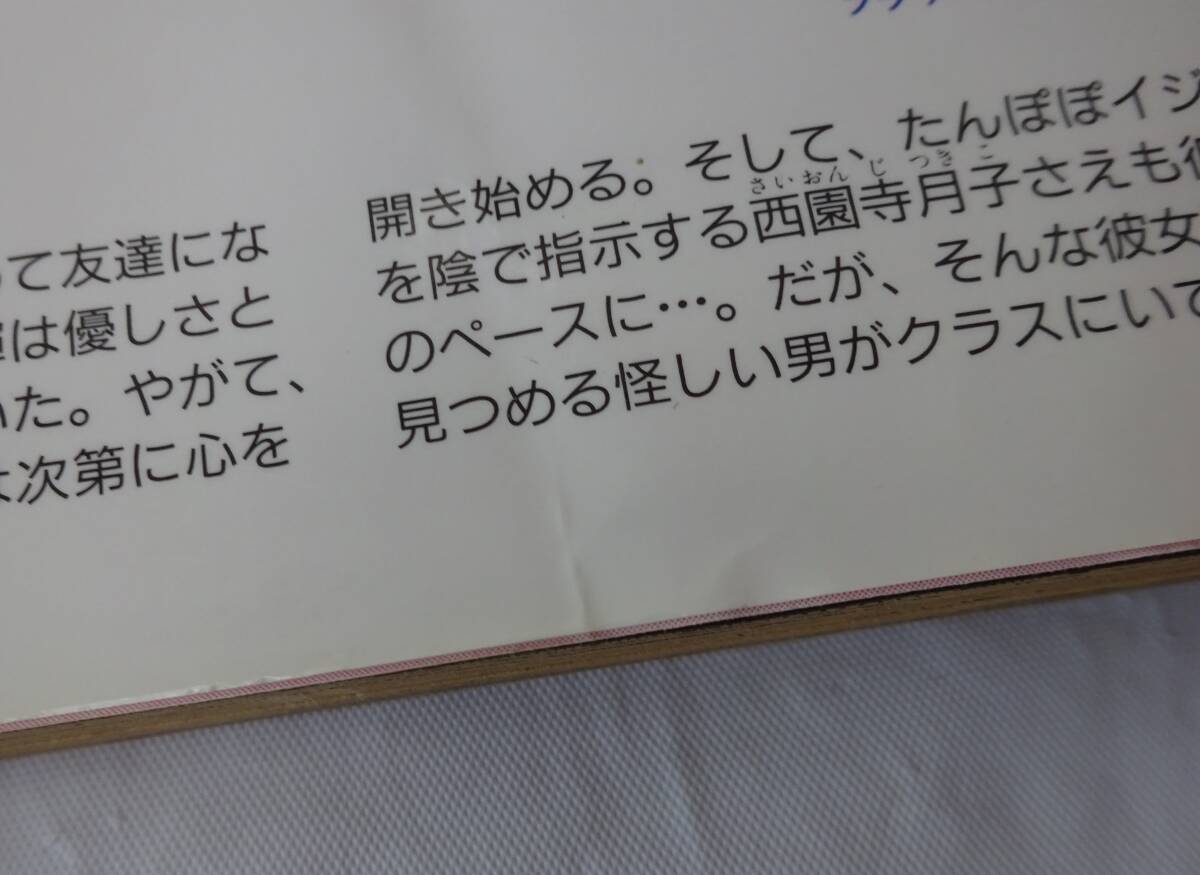 って友達にな
は優しさと
いた。やがて、
次第に心を
開き始める。そして、たんぽぽイジ
を陰で指示する西園寺月子さえも彼
さいおんじつきこ
のペースに…。だが、そんな彼女
見つめる怪しい男がクラスにいて